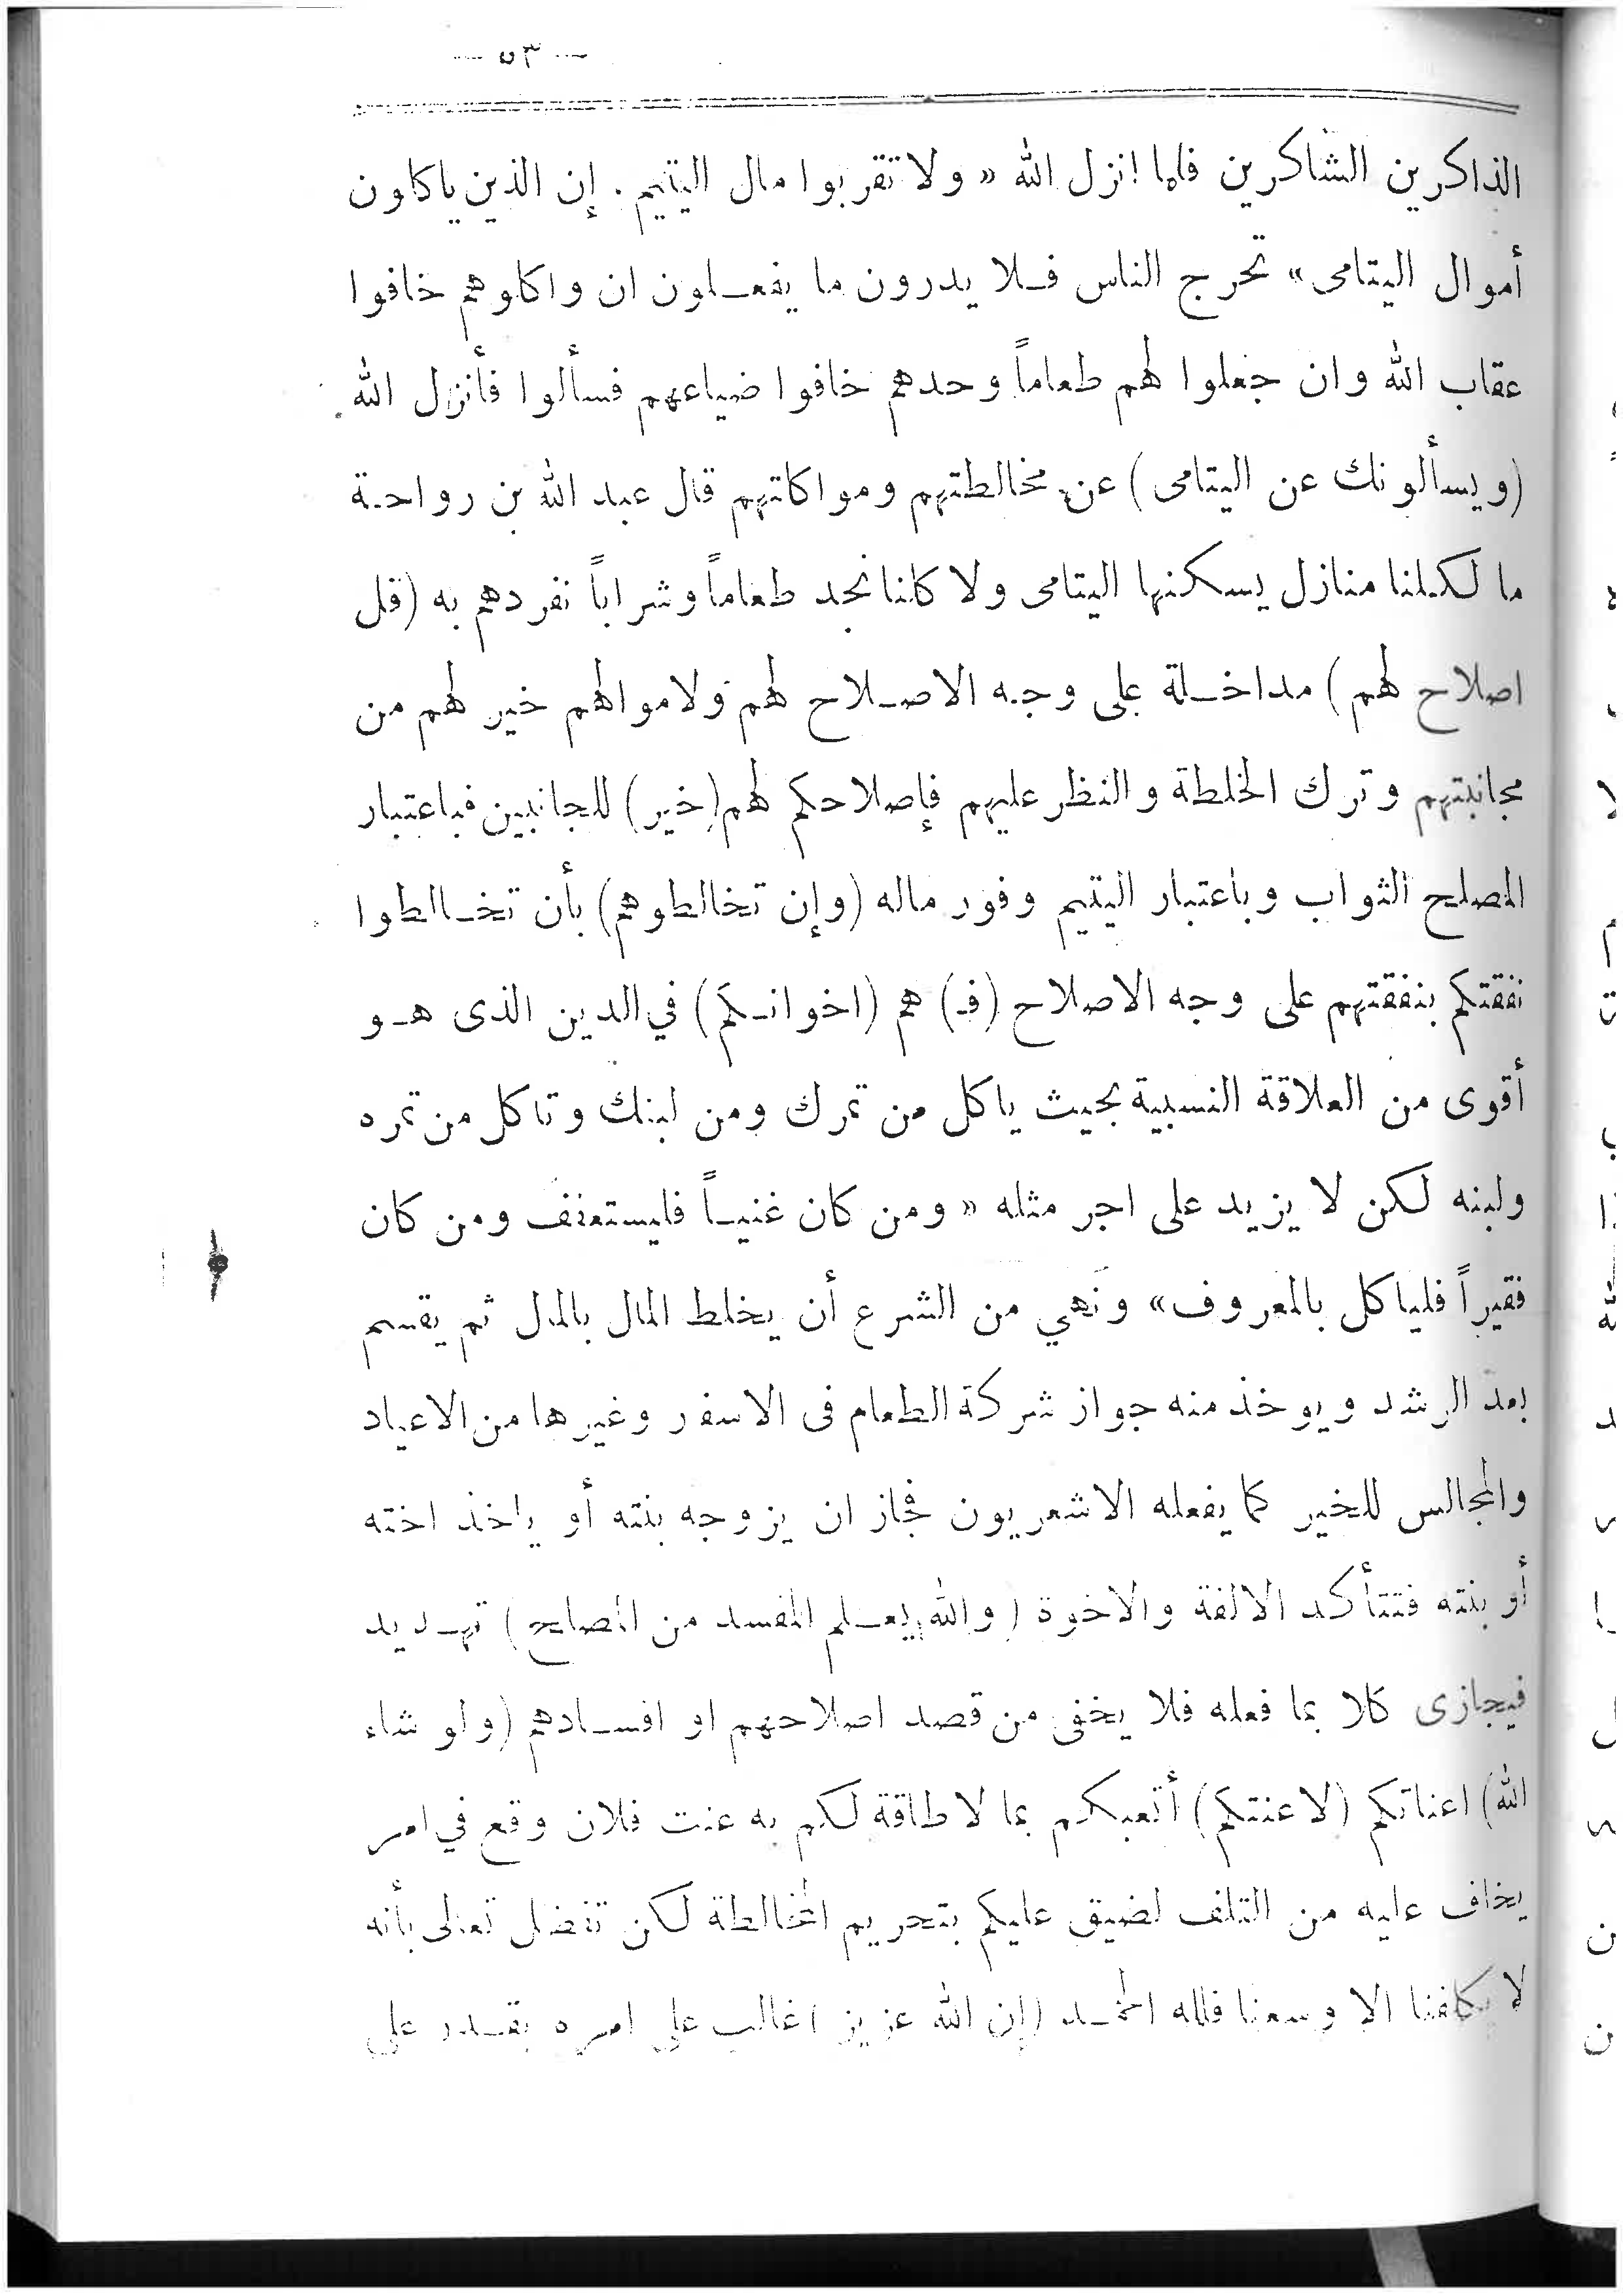 — ٥٣ —
الذاكرين الشاكرين فلما انزل الله « ولا تقربوا مال اليتيم . إن الذين ياكلون
أموال اليتامى » تحرج الناس فلا يدرون ما يفعلون ان واكلوهم خافوا
عقاب الله وان جعلوا لهم طعاماً وحدهم خافوا ضياعهم فسألوا فأنزل الله
(ويسألونك عن اليتامى) عن مخالطتهم ومواكلتهم قال عبد الله بن رواحة
ما لكلنا منازل يسكنها اليتامى ولا كلنا نجد طعاماً وشراباً نفردهم به (قل
اصلاح لهم) مداخلة على وجه الاصلاح لهم ولاموالهم خير لهم من
مجانبتهم وترك الخلطة والنظر عليهم فإصلاحكم لهم (خير) للجانبين فباعتبار
المصلح الثواب وباعتبار اليتيم وفور ماله (وإن تخالطوهم) بأن تخالطوا
نفقتكم بنفقتهم على وجه الاصلاح (فـ) هم (اخوانكم) في الدين الذى هو
أقوى من العلاقة النسبية بحيث ياكل من تمرك ومن لبنك وتاكل من تمره
ولبنه لكن لا يزيد على اجر مثله « ومن كان غنياً فليستعفف ومن كان
فقيراً فلياكل بالمعروف » ونهي من الشرع أن يخلط المال بالمال ثم يقسم
بعد الرشد ويوخذ منه جواز شركة الطعام فى الاسفر وغيرها من الاعياد
والمجالس للخير كما يفعله الاشعريون فجاز ان يزوجه بنته أو ياخذ اخته
أو بنته فتتأكد الالفة والاخوة (والله يعلم المفسد من المصلح) تهديد
فيجازى كلا بما فعله فلا يخفى من قصد اصلاحهم او افسادهم (ولو شاء
الله) اعناتكم (لاعنتكم) أتعبكم بما لا طاقة لكم به عنت فلان وقع في امر
يخاف عليه من التلف لضيق عليكم بتحريم المخالطة لكن تفضل تعالى بأنه
لا يكلفنا الا وسعنا فلله الحمد (إن الله عزيز) غالب على امره يقدر على